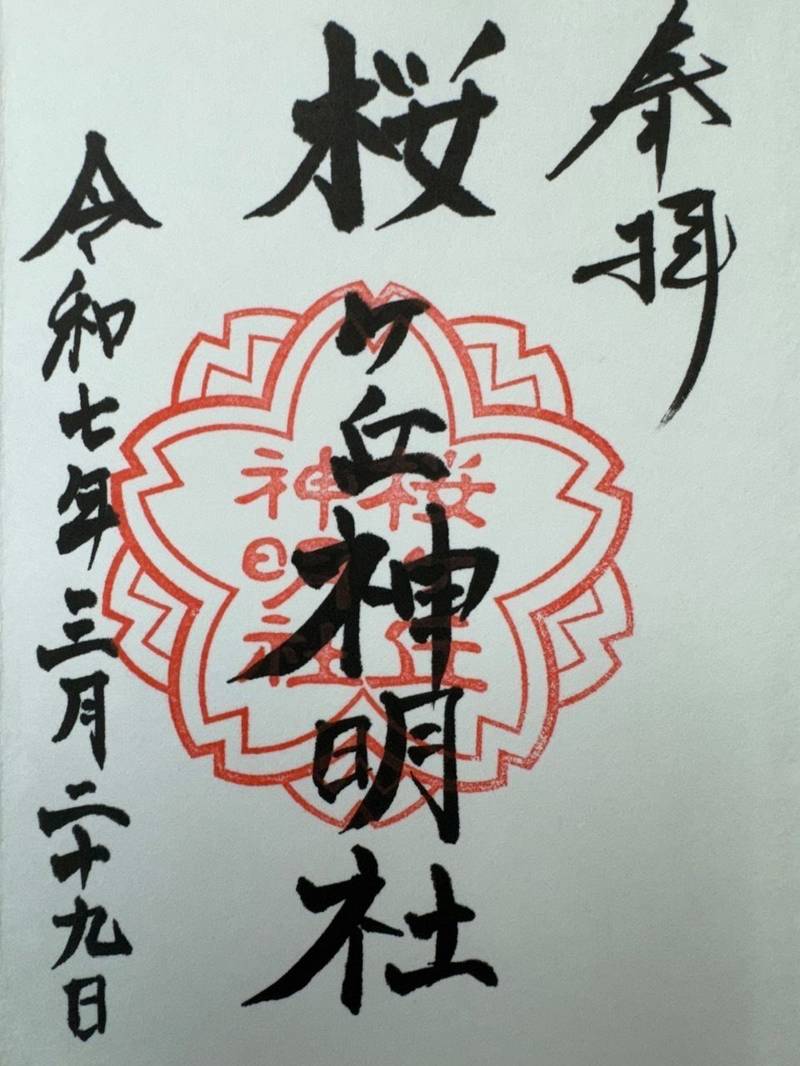 奉拝
桜ヶ丘神明社
桜ヶ丘
神明社
令和七年三月二十九日